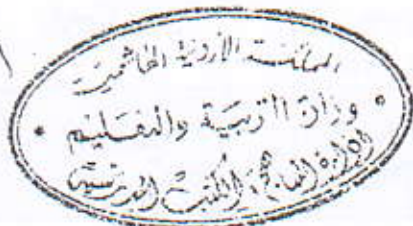 المملكة الأردنية الهاشمية
وزارة التربية والتعليم
المناهج والكتب المدرسية